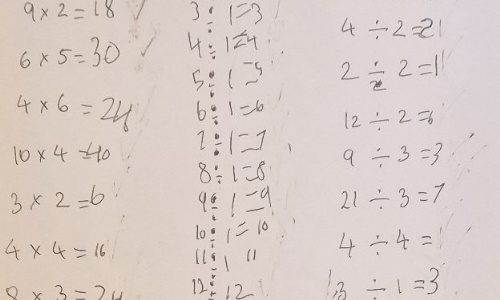 9 x 2 = 18
6 x 5 = 30
4 x 6 = 24
10 x 4 = 40
3 x 2 = 6
4 x 4 = 16
8 x 3 = 24
3 ÷ 1 = 3
4 ÷ 1 = 4
5 ÷ 1 = 5
6 ÷ 1 = 6
7 ÷ 1 = 7
8 ÷ 1 = 8
9 ÷ 1 = 9
10 ÷ 1 = 10
11 ÷ 1 11
12 ÷ 12
4 ÷ 2 = 21
2 ÷ 2 = 1
12 ÷ 2 = 6
9 ÷ 3 = 3
21 ÷ 3 = 7
4 ÷ 4 = 1
3 ÷ 1 = 3